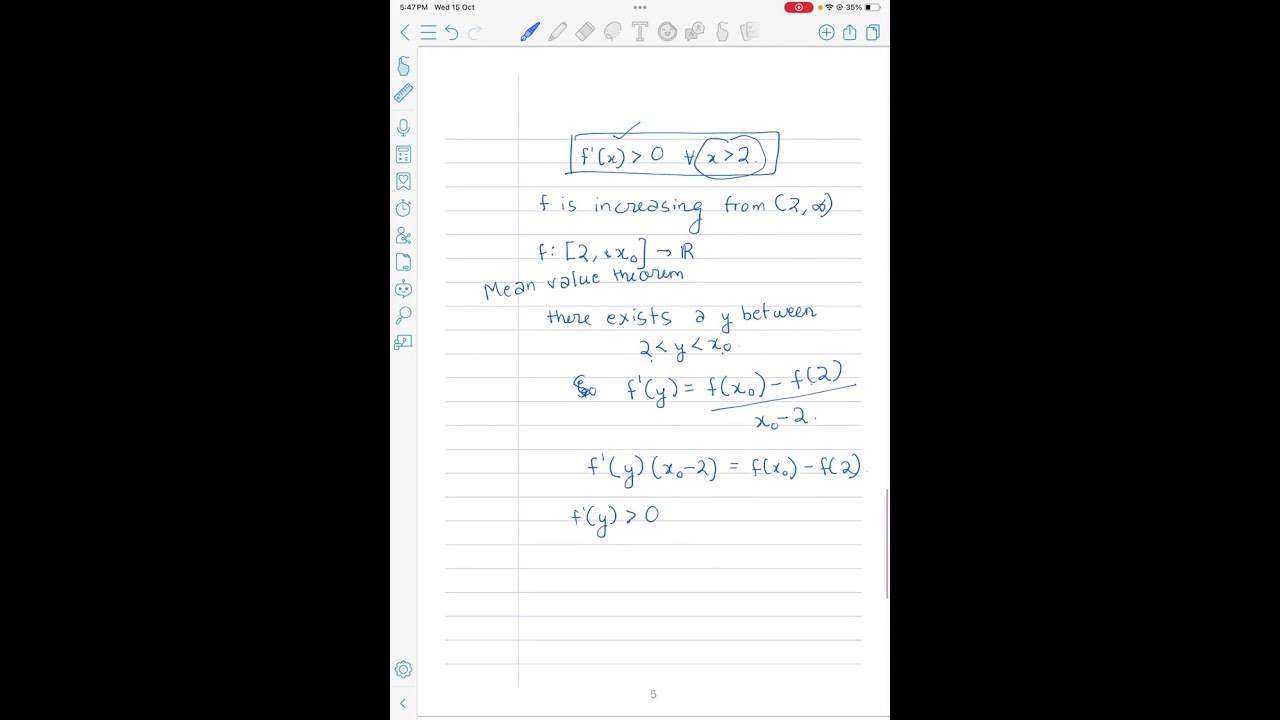 5:47 PM Wed 15 Oct
35%
f'(x) > 0 ∀ x > 2.
f is increasing from (2, ∞)
f: [2, x₀] → ℝ
Mean value theorem
there exists a y between
2 < y < x₀
So f'(y) = f(x₀) - f(2)
x₀ - 2.
f'(y) (x₀-2) = f(x₀) - f(2)
f'(y) > 0
5